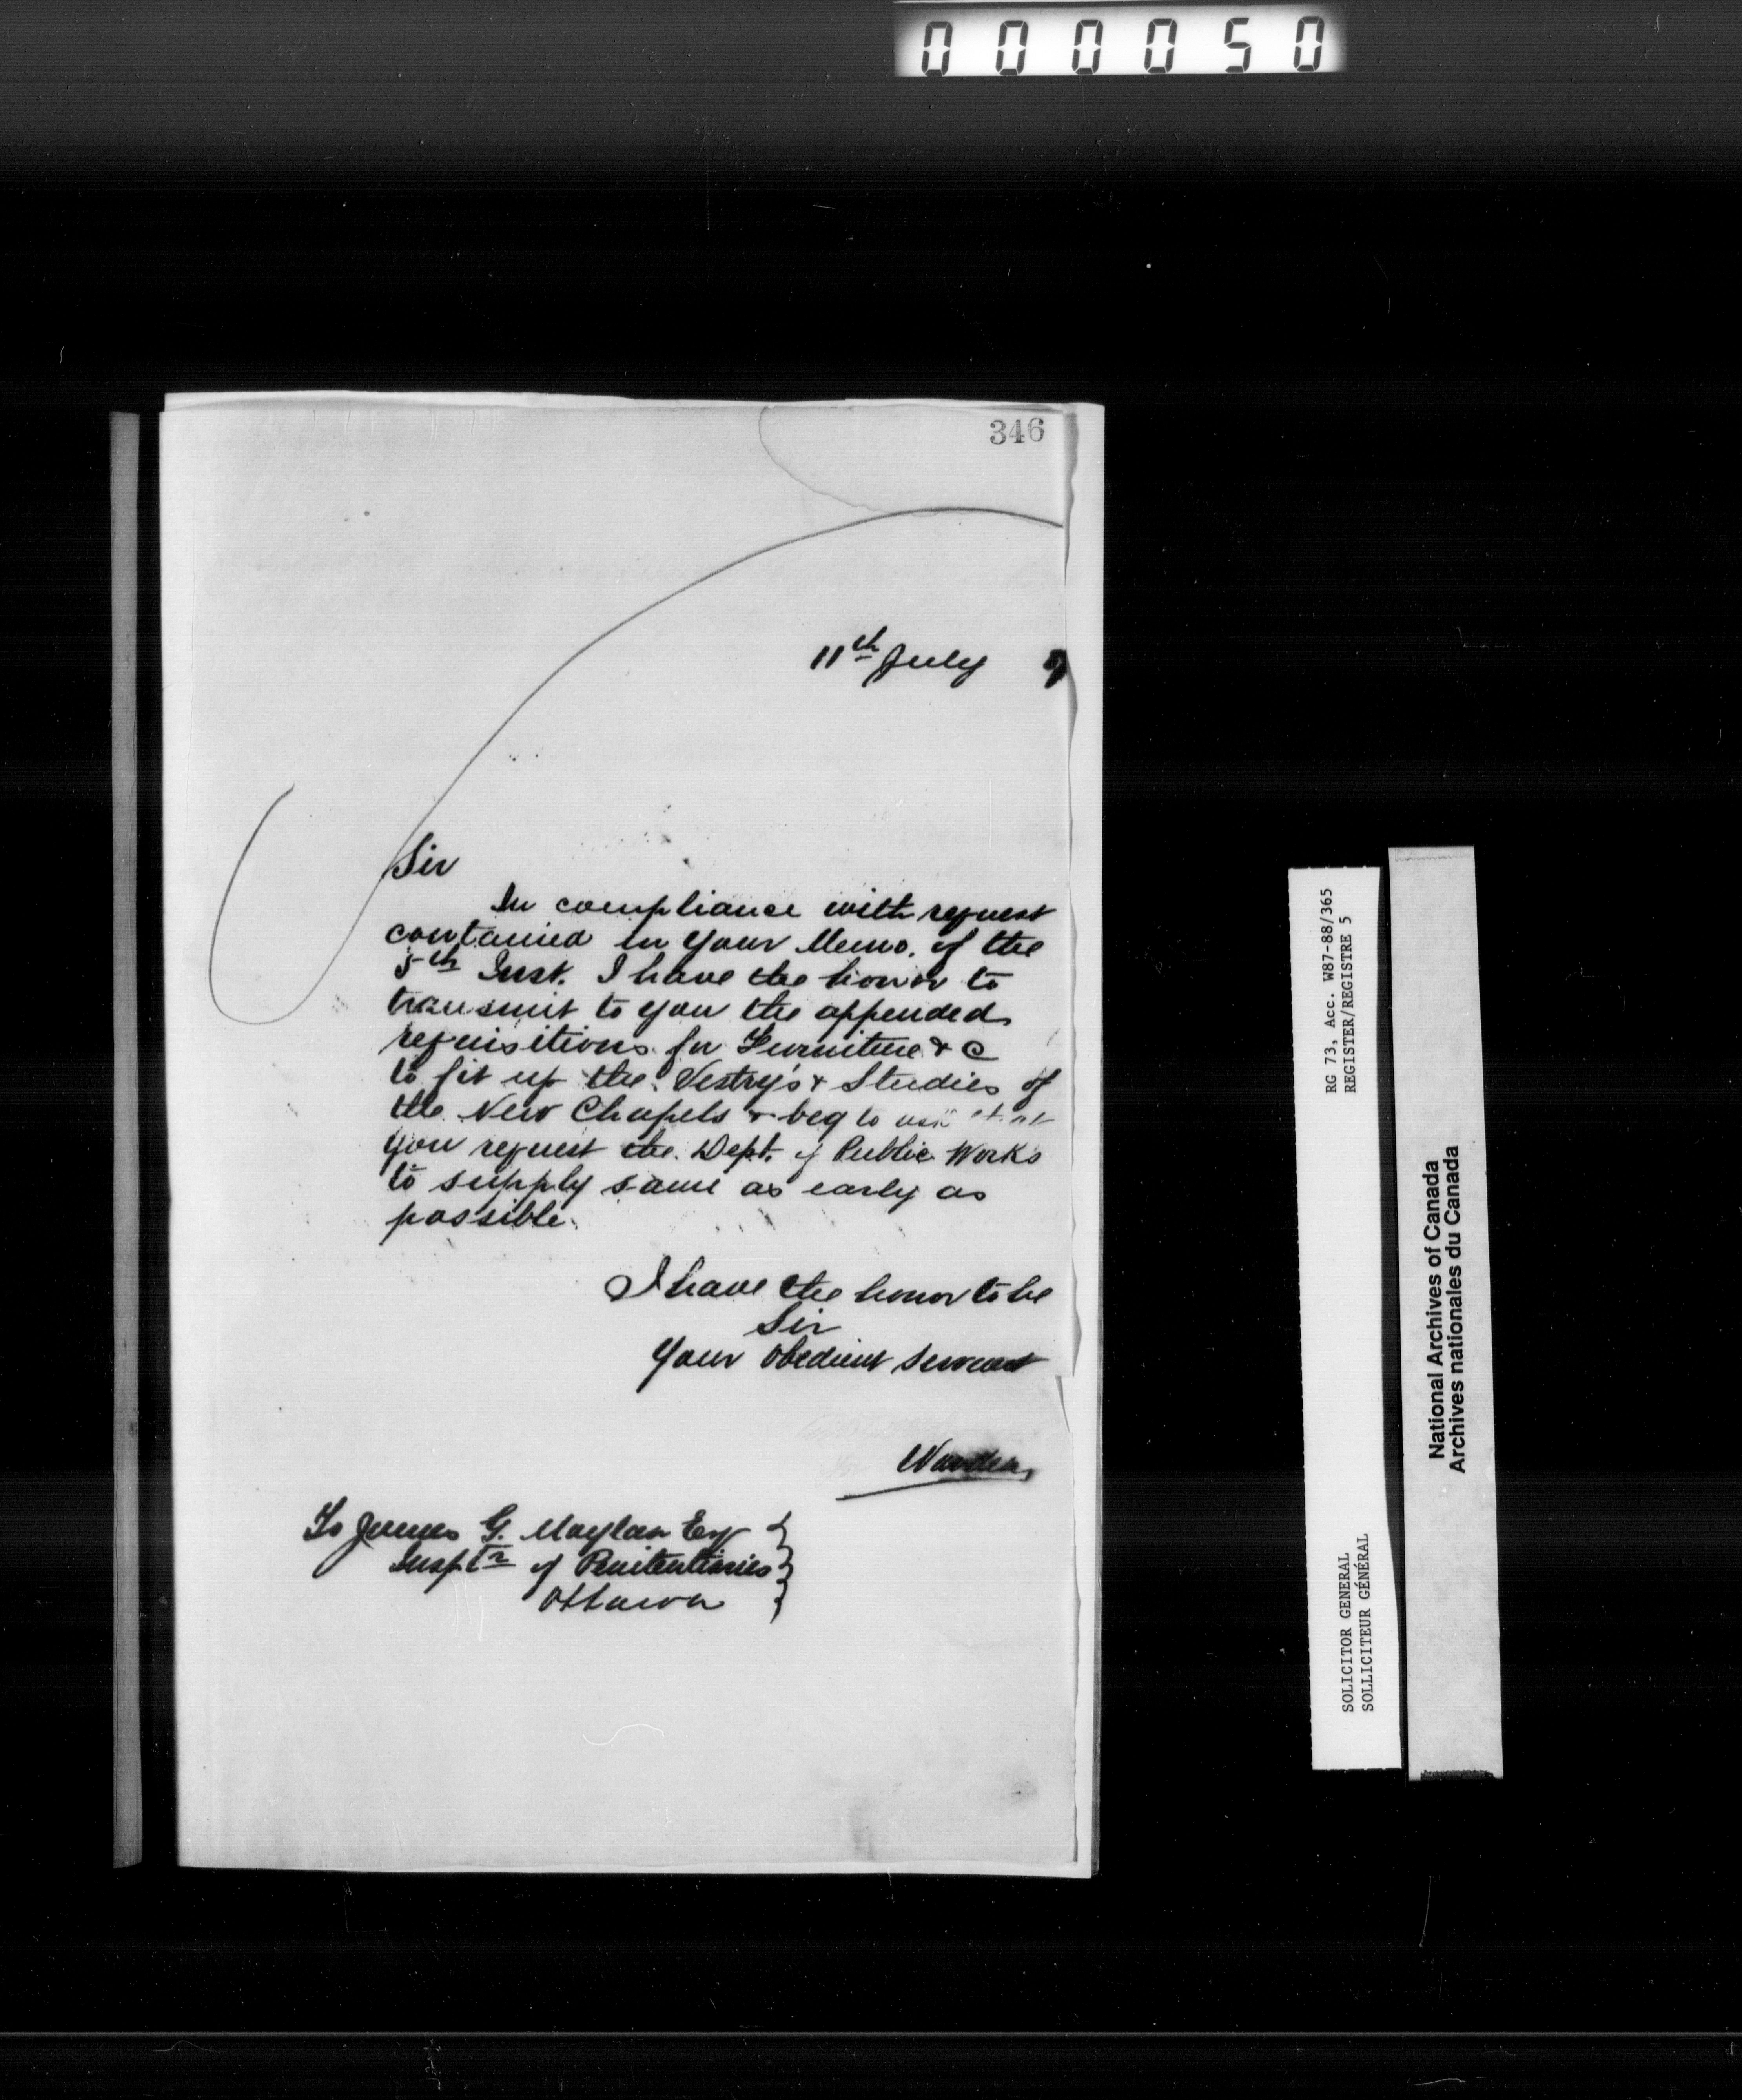 000050
346
11th July
Sir
In compliance with request
contained in your Memo. of the
5th Inst. I have the honor to
transmit to you the appended
requisitions for Furniture & C
to fit up the Vestry's & Studies of
the New Chapels & beg to ask that
you request the Dept. of Public Works
to supply same as early as
possible.
I have the honor to be
Sir
Your obedient servant
Warden
To James G. Moylan Esq
Insptr of Penitentiaries
Ottawa
RG 73, Acc. W87-88/365
REGISTER/REGISTRE 5
SOLICITOR GENERAL
SOLLICITEUR GÉNÉRAL
National Archives of Canada
Archives nationales du Canada